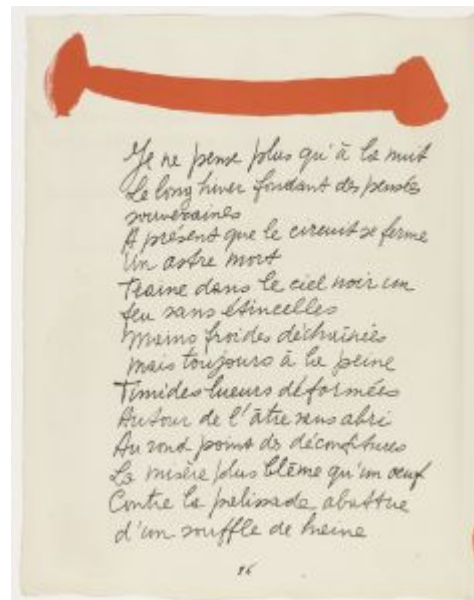 Je ne pense plus qu'à la nuit
Le long hiver fondant des pensées
souveraines
A présent que le circuit se ferme
Un astre mort
Traine dans le ciel noir un
feu sans étincelles
Mains froides déchaînées
mais toujours à la peine
Timides lueurs déformées
Autour de l'âtre sans abri
Au rond point des déconfitures
La misère plus blême qu'un œuf
Contre la palissade abattue
d'un souffle de haine